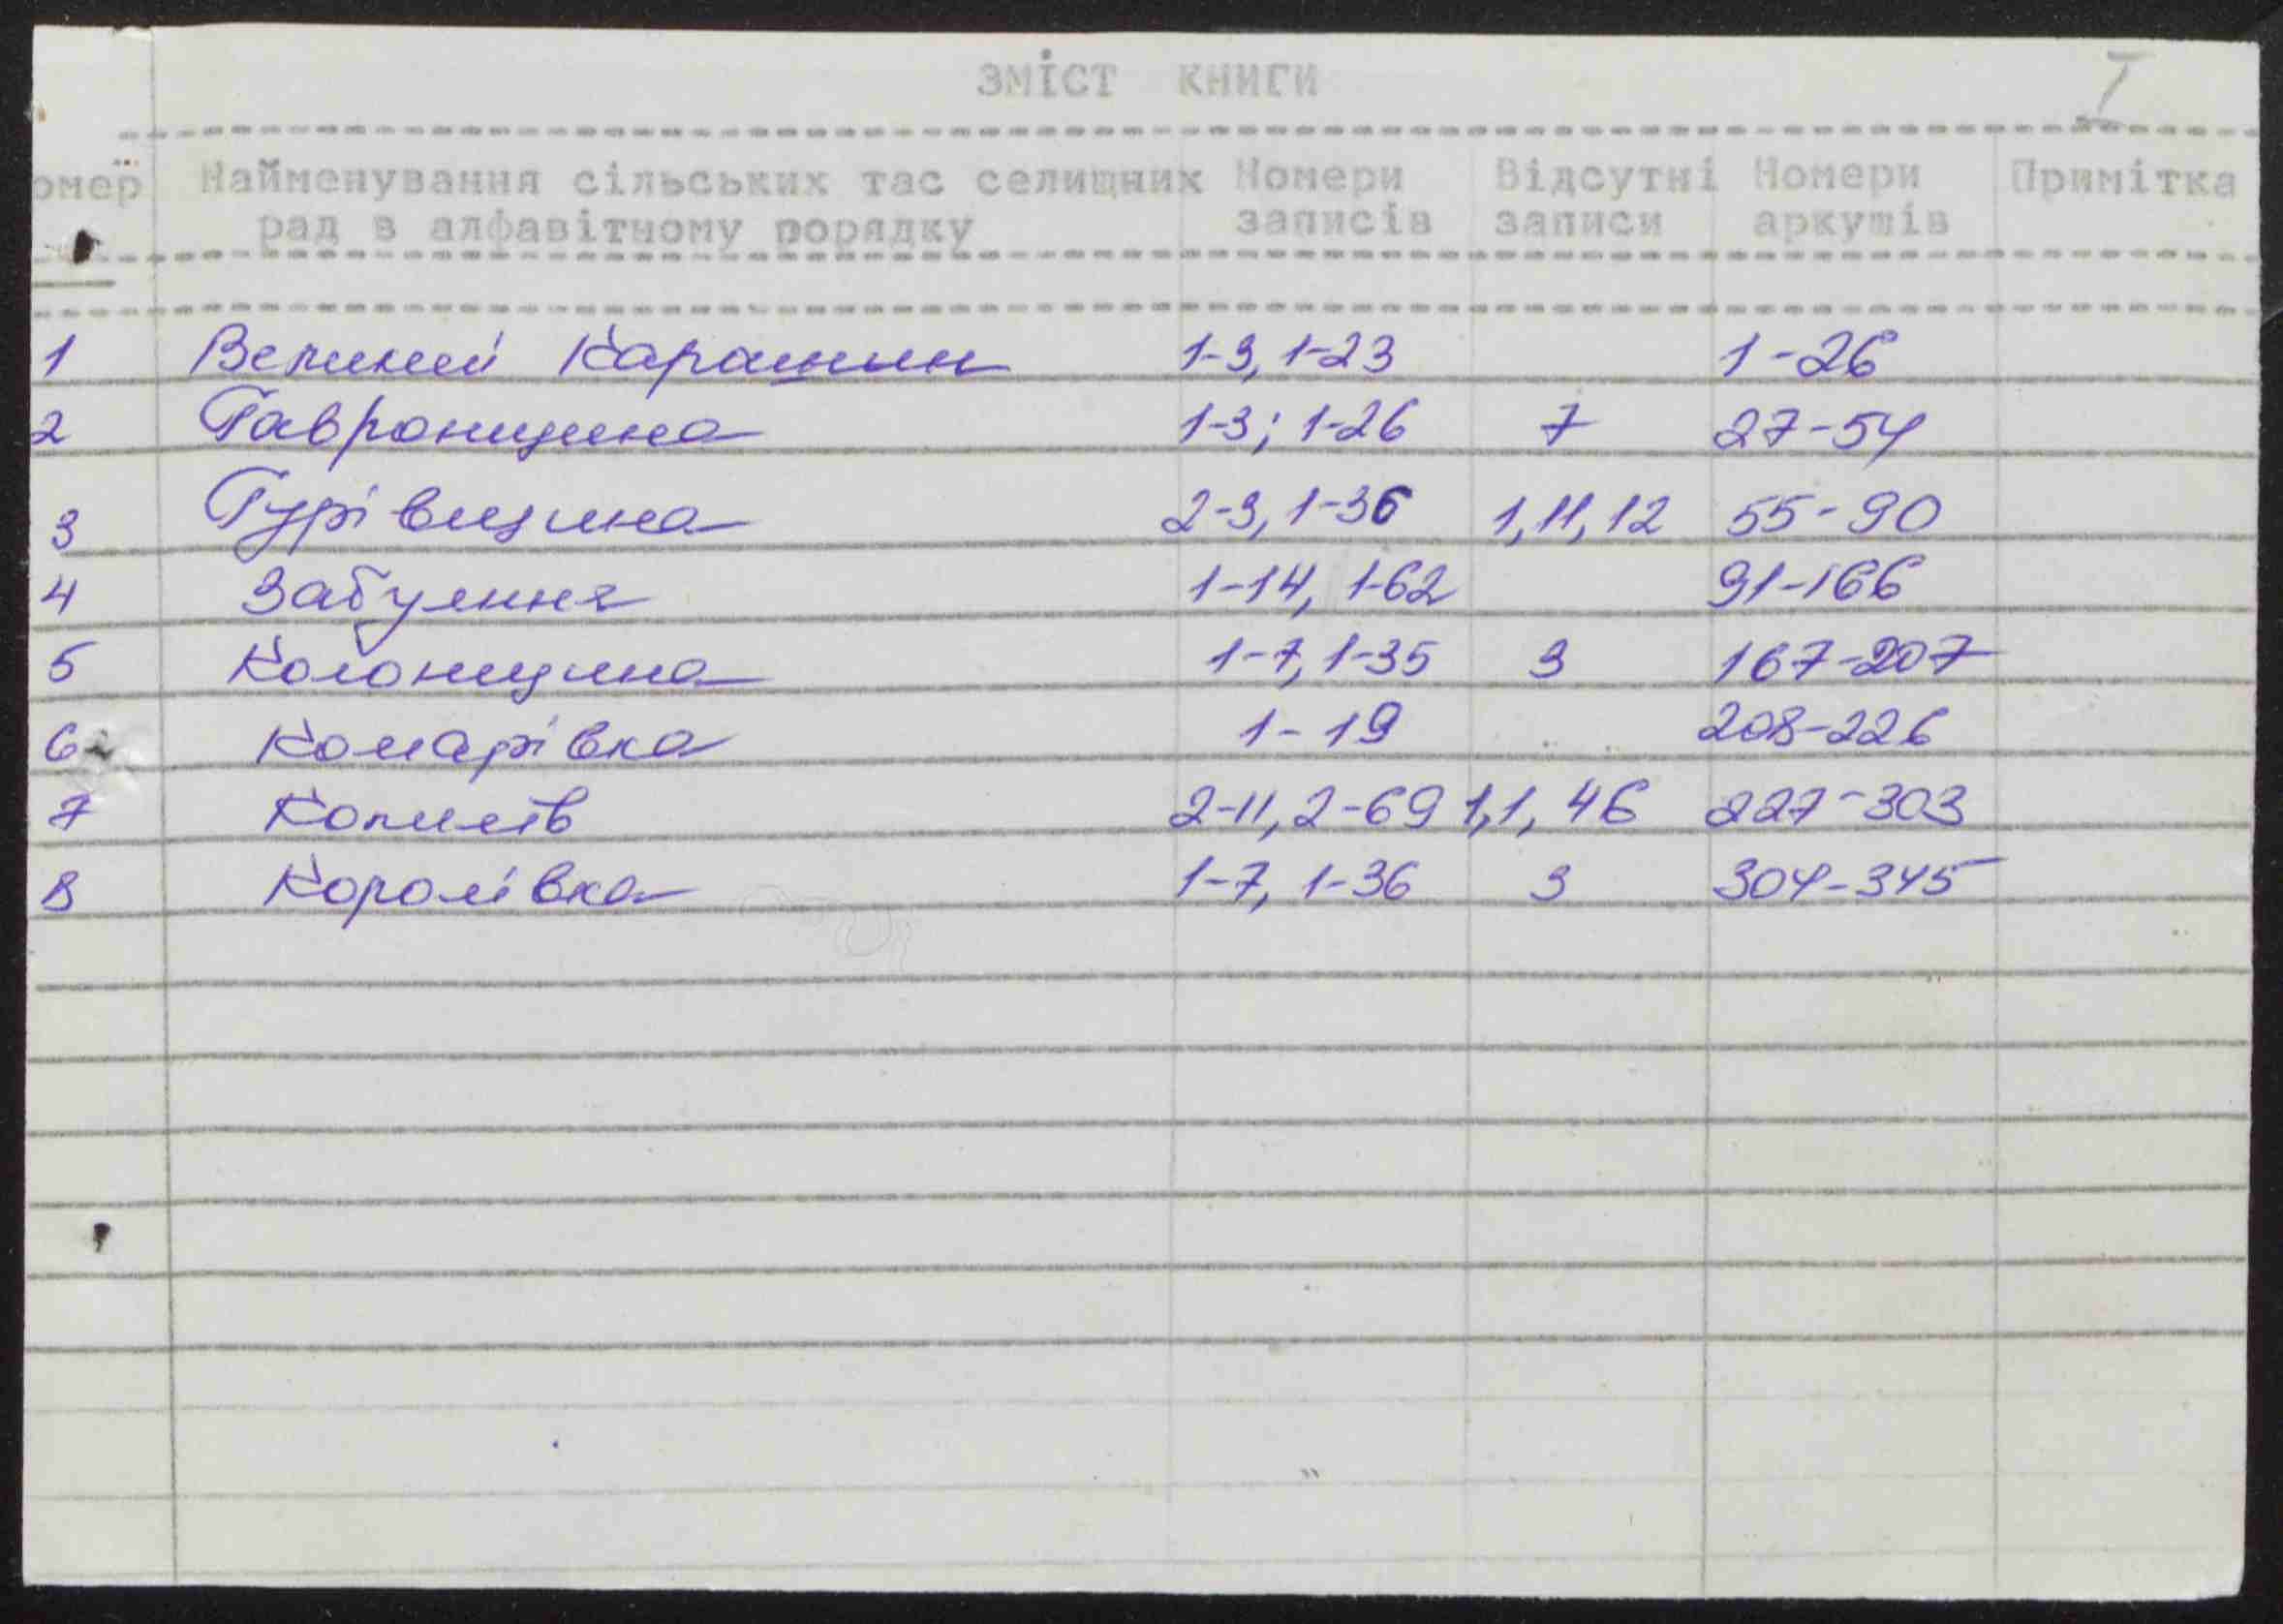 ЗМІСТ КНИГИ
I
омер Найменування сільських тас селищних Номери Відсутні Номери Примітка
рад в алфавітному порядку записів записи аркушів
1 Великий Карашин 1-3, 1-23 1-26
2 Гавронщина 1-3; 1-26 7 27-54
3 Гурівщина 2-3, 1-36 1, 11, 12 55-90
4 Забуяння 1-14, 1-62 91-166
5 Колонщина 1-7, 1-35 3 167-207
6 Комарівка 1-19 208-226
7 Копилів 2-11, 2-69 1,1, 46 227-303
8 Королівка 1-7, 1-36 3 304-345